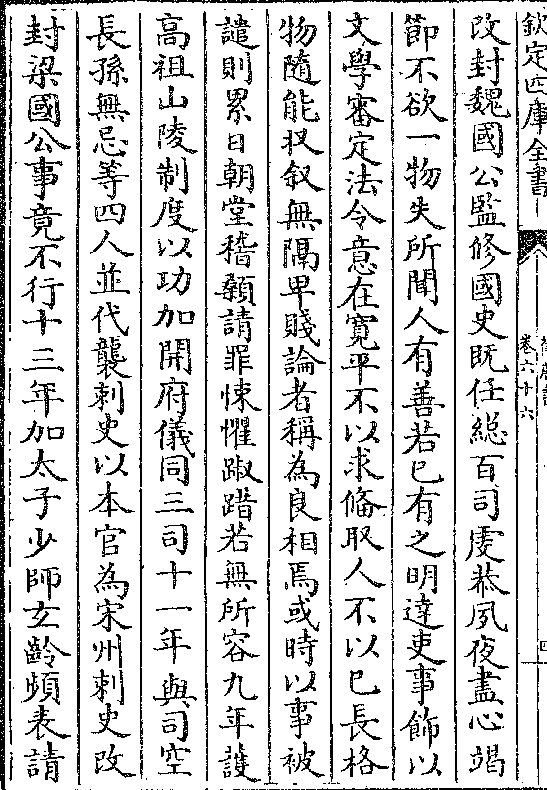 欽定四庫全書
舊唐書
卷六十六
四
改封魏國公監修國史既任總百司虔恭夙夜盡心竭
節不欲一物失所聞人有善若已有之明達吏事飾以
文學審定法令意在寛平不以求備取人不以已長格
物隨能收叙無隔卑賤論者稱為良相焉或時以事被
譴則累日朝堂稽顙請罪悚懼踧踖若無所容九年護
高祖山陵制度以功加開府儀同三司十一年與司空
長孫無忌等四人並代襲刺史以本官為宋州刺史改
封梁國公事竟不行十三年加太子少師玄齡頻表請